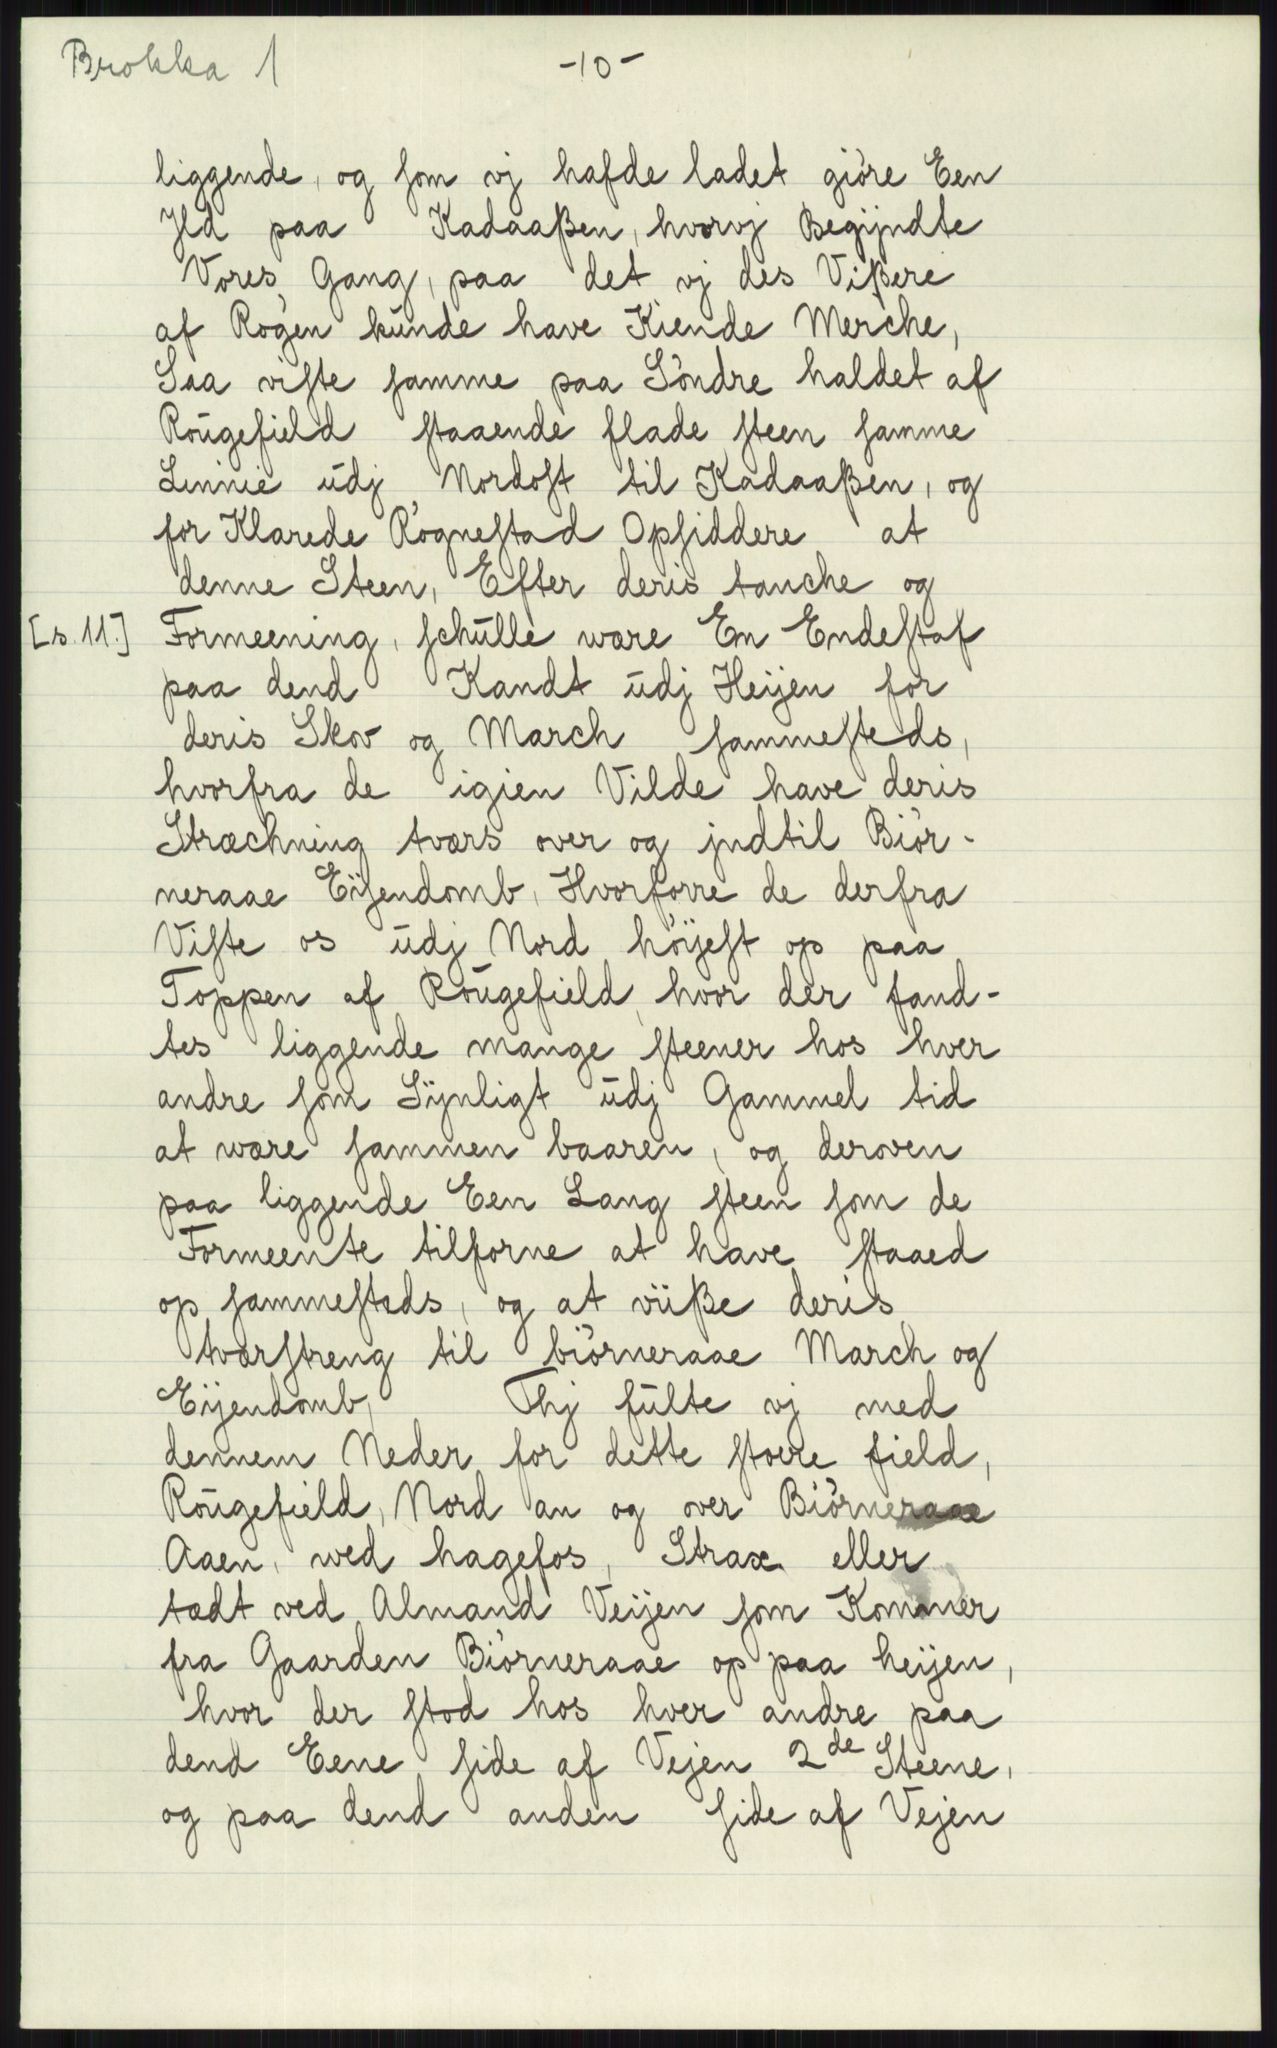 Brokka 1
-10-
liggende, og som vj hafde ladet giöre Een
Jld paa Kadaaßen, hvorvj Begÿndte
Vores Gang, paa det vj des Vißere
af Rögen kunde have Kiende Merche,
Saa viste samme paa Söndre haldet af
Rougefield staaende flade steen samme
Linnie udj Nordost til Kadaaßen, og
for Klarede Rögnestad Opsiddere at
denne Steen, Efter deris tanche og
[s. 11.] Formeening, schulle være En Endestaf
paa dend Kandt udj Heÿen for
deris Skov og March sammesteds,
hvorfra de igien Vilde have deris
Stræchning tværs over og jndtil Biör-
neraae Eÿendomb, Hvorforre de derfra
Viste os udj Nord höÿest op paa
Toppen af Rougefield, hvor der fand-
tes liggende mange steener hos hver
andre som Sÿnligt udj Gammel tid
at være sammen baaren, og deroven
paa liggende Een Lang steen som de
Formeente tilforne at have staaed
op sammesteds, og at viiße deris
tværstreng til biörneraae March og
Eÿendomb, Thj fulte vj med
dennem Neder for dette stoere field,
Rougefield, Nord an og over Biörneraae
Aaen, ved hagefos, Strax eller
tædt ved Almand Veÿen som Kommer
fra Gaarden Biörneraae op paa heÿen,
hvor der stod hos hver andre paa
dend Eene side af Vejen 2de Steene,
og paa dend anden side af Vejen